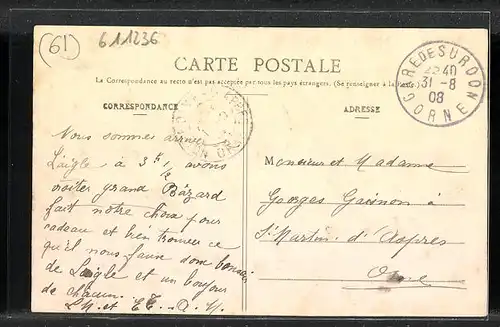 (61)
611236
CARTE POSTALE
La Correspondance au recto n'est pas acceptée par tous les pays étrangers. (Se renseigner à la Poste)
CORRESPONDANCE
ADRESSE
GARE DE SURDON
22 40
31 - 8
08
ORNE
Nous sommes arrivé
Laigle à 3h ½ avons
visiter grand Bazard
fait notre choix pour
cadeau et bien trouver ce
qu'il nous faut
de Laigle et un bonjour
de chacun.
Monsieur et Madame
Georges à
St Martin d'Aspres
Orne